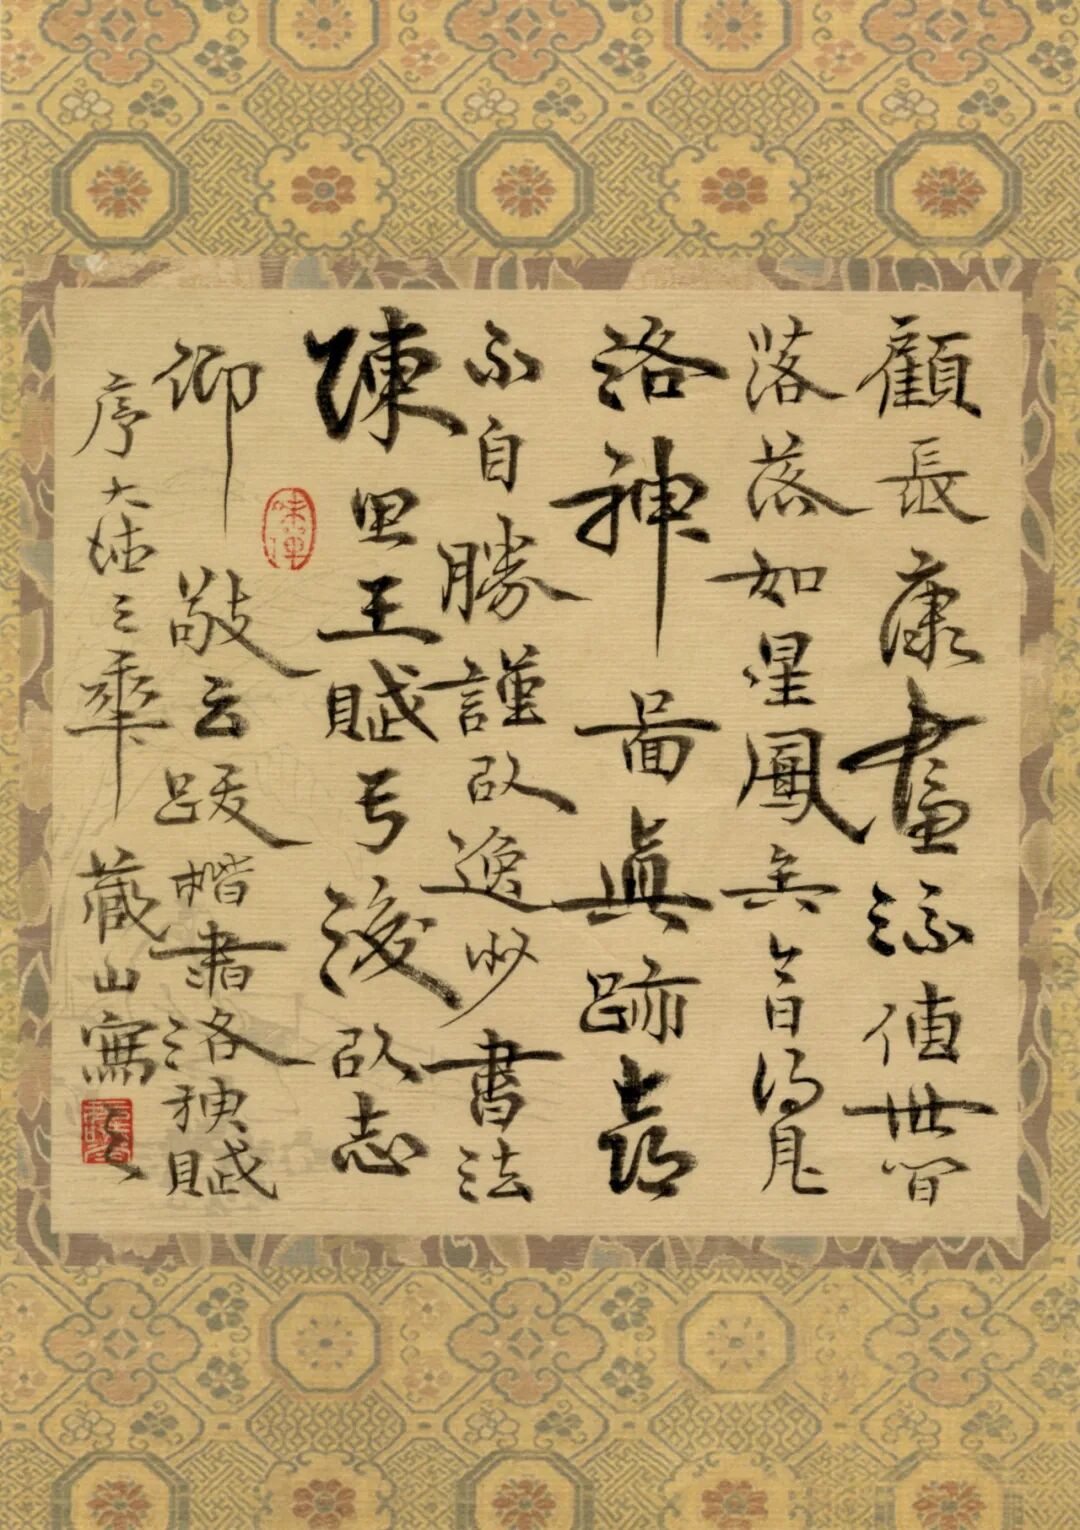 顧長康畫流傳世間
落落如星鳳矣今日得見
洛神圖真跡喜
不自勝謹以逸少書法
陳思王賦亏後以志
仰 敬云跋楷書洛神賦
序大德三秊 藏山寫之